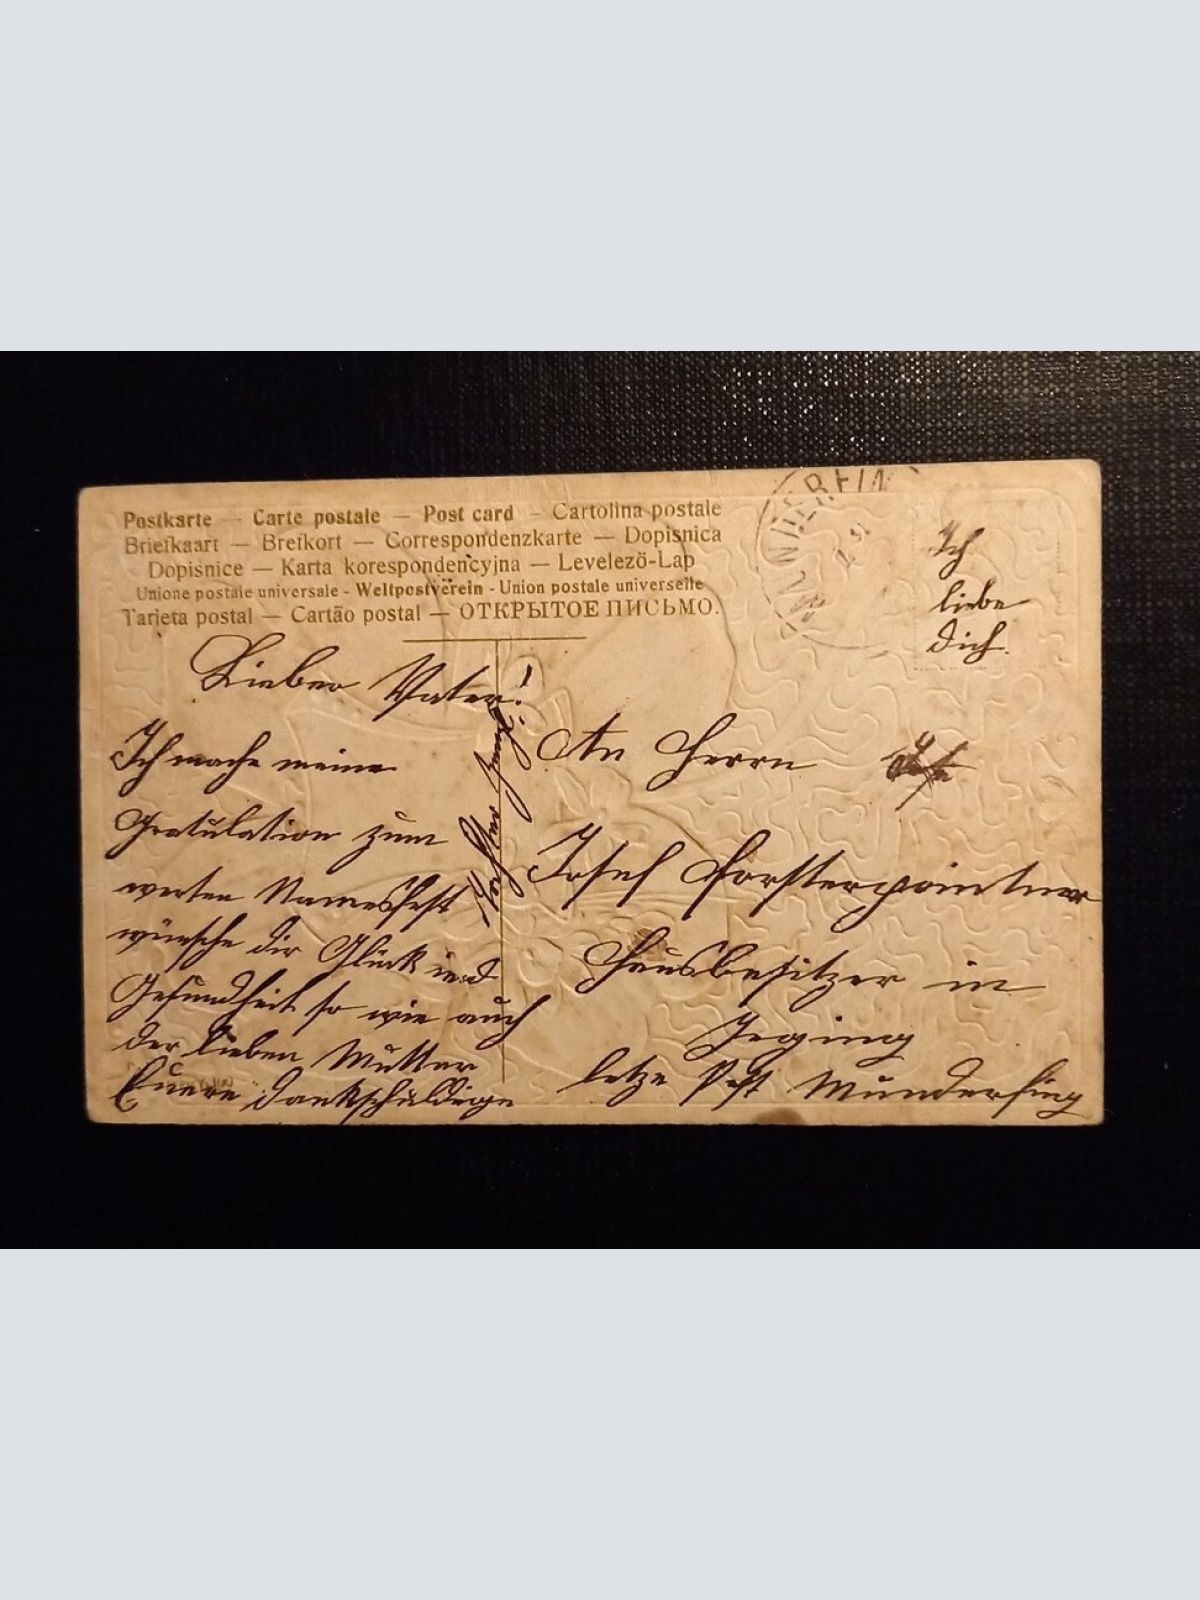 Postkarte — Carte postale — Post card — Cartolina postale
Briefkaart — Brefkort — Correspondenzkarte — Dopisnica
Dopisnice — Karta korespondencyjna — Levelező-Lap
Unione postale universale - Weltpostverein - Union postale universelle
Tarjeta postal — Cartão postal — ОТКРЫТОЕ ПИСЬМО.
Ich
liebe
dich.
Lieber Vater!
Ich mache meine
Gratulation zum
werten Namensfest
wünsche dir Glück und
Gesundheit so wie auch
der lieben Mutter
Euere dankschuldige
Tochter
An Herrn
Josef Forsterpointner
Hausbesitzer in
Jeging
letze Post Munderfing